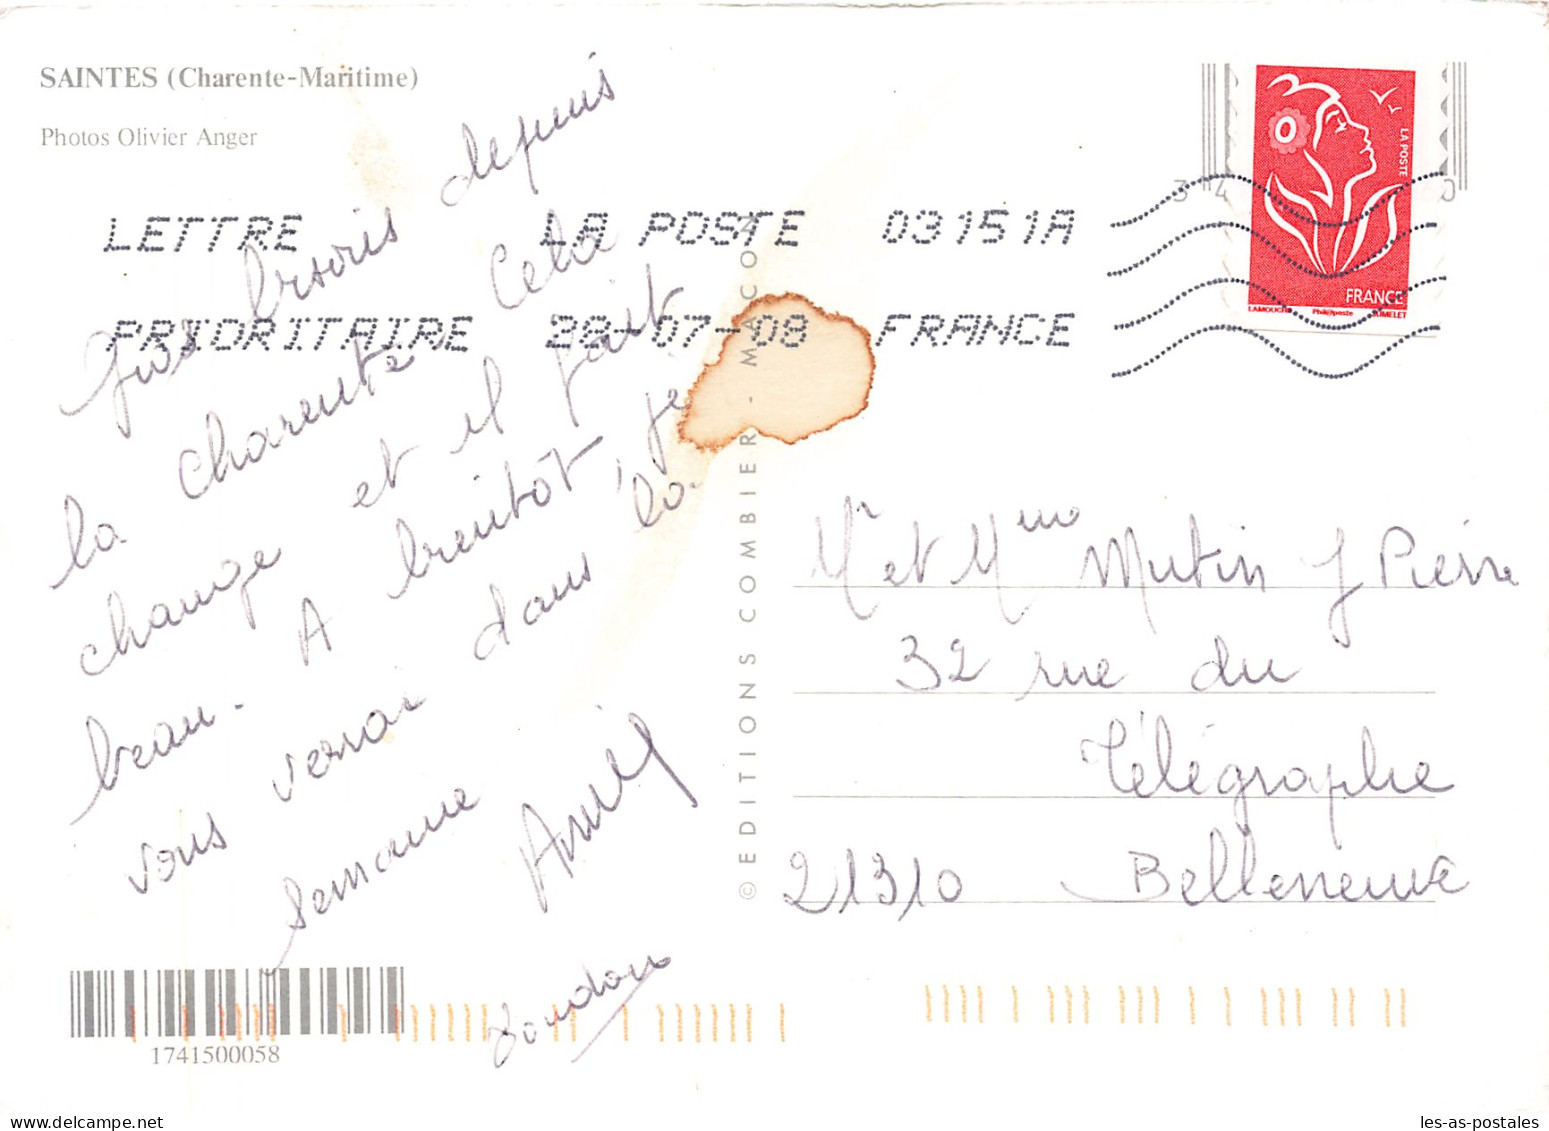 SAINTES (Charente-Maritime)
Photos Olivier Anger
LETTRE LA POSTE 03151A
PRIORITAIRE 28-07-08 FRANCE
LA POSTE
FRANCE
LAMOUCHE Phil@poste AUMELET
Gros bisous depuis
la charente Cela
change et il fait
beau. A bientôt, je
vous verrai dans la
semaine
© EDITIONS COMBIER - MACON
Mr et Mme Mutin J Pierre
32 rue du
Télégraphe
21310 Belleneuve
1741500058
les-as-postales